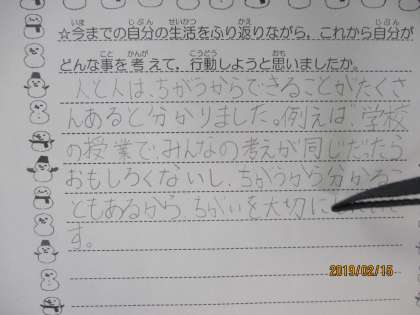 ☆今までの自分の生活をふり返りながら、これから自分が
どんな事を考えて、行動しようと思いましたか。
人と人は、ちがうからできることがたくさ
んあると分かりました。例えば、学校
の授業で、みんなの考えが同じだったら
おもしろくないし、ちがうから分かるこ
ともあるから ちがいを大切に
す。
2019/02/15